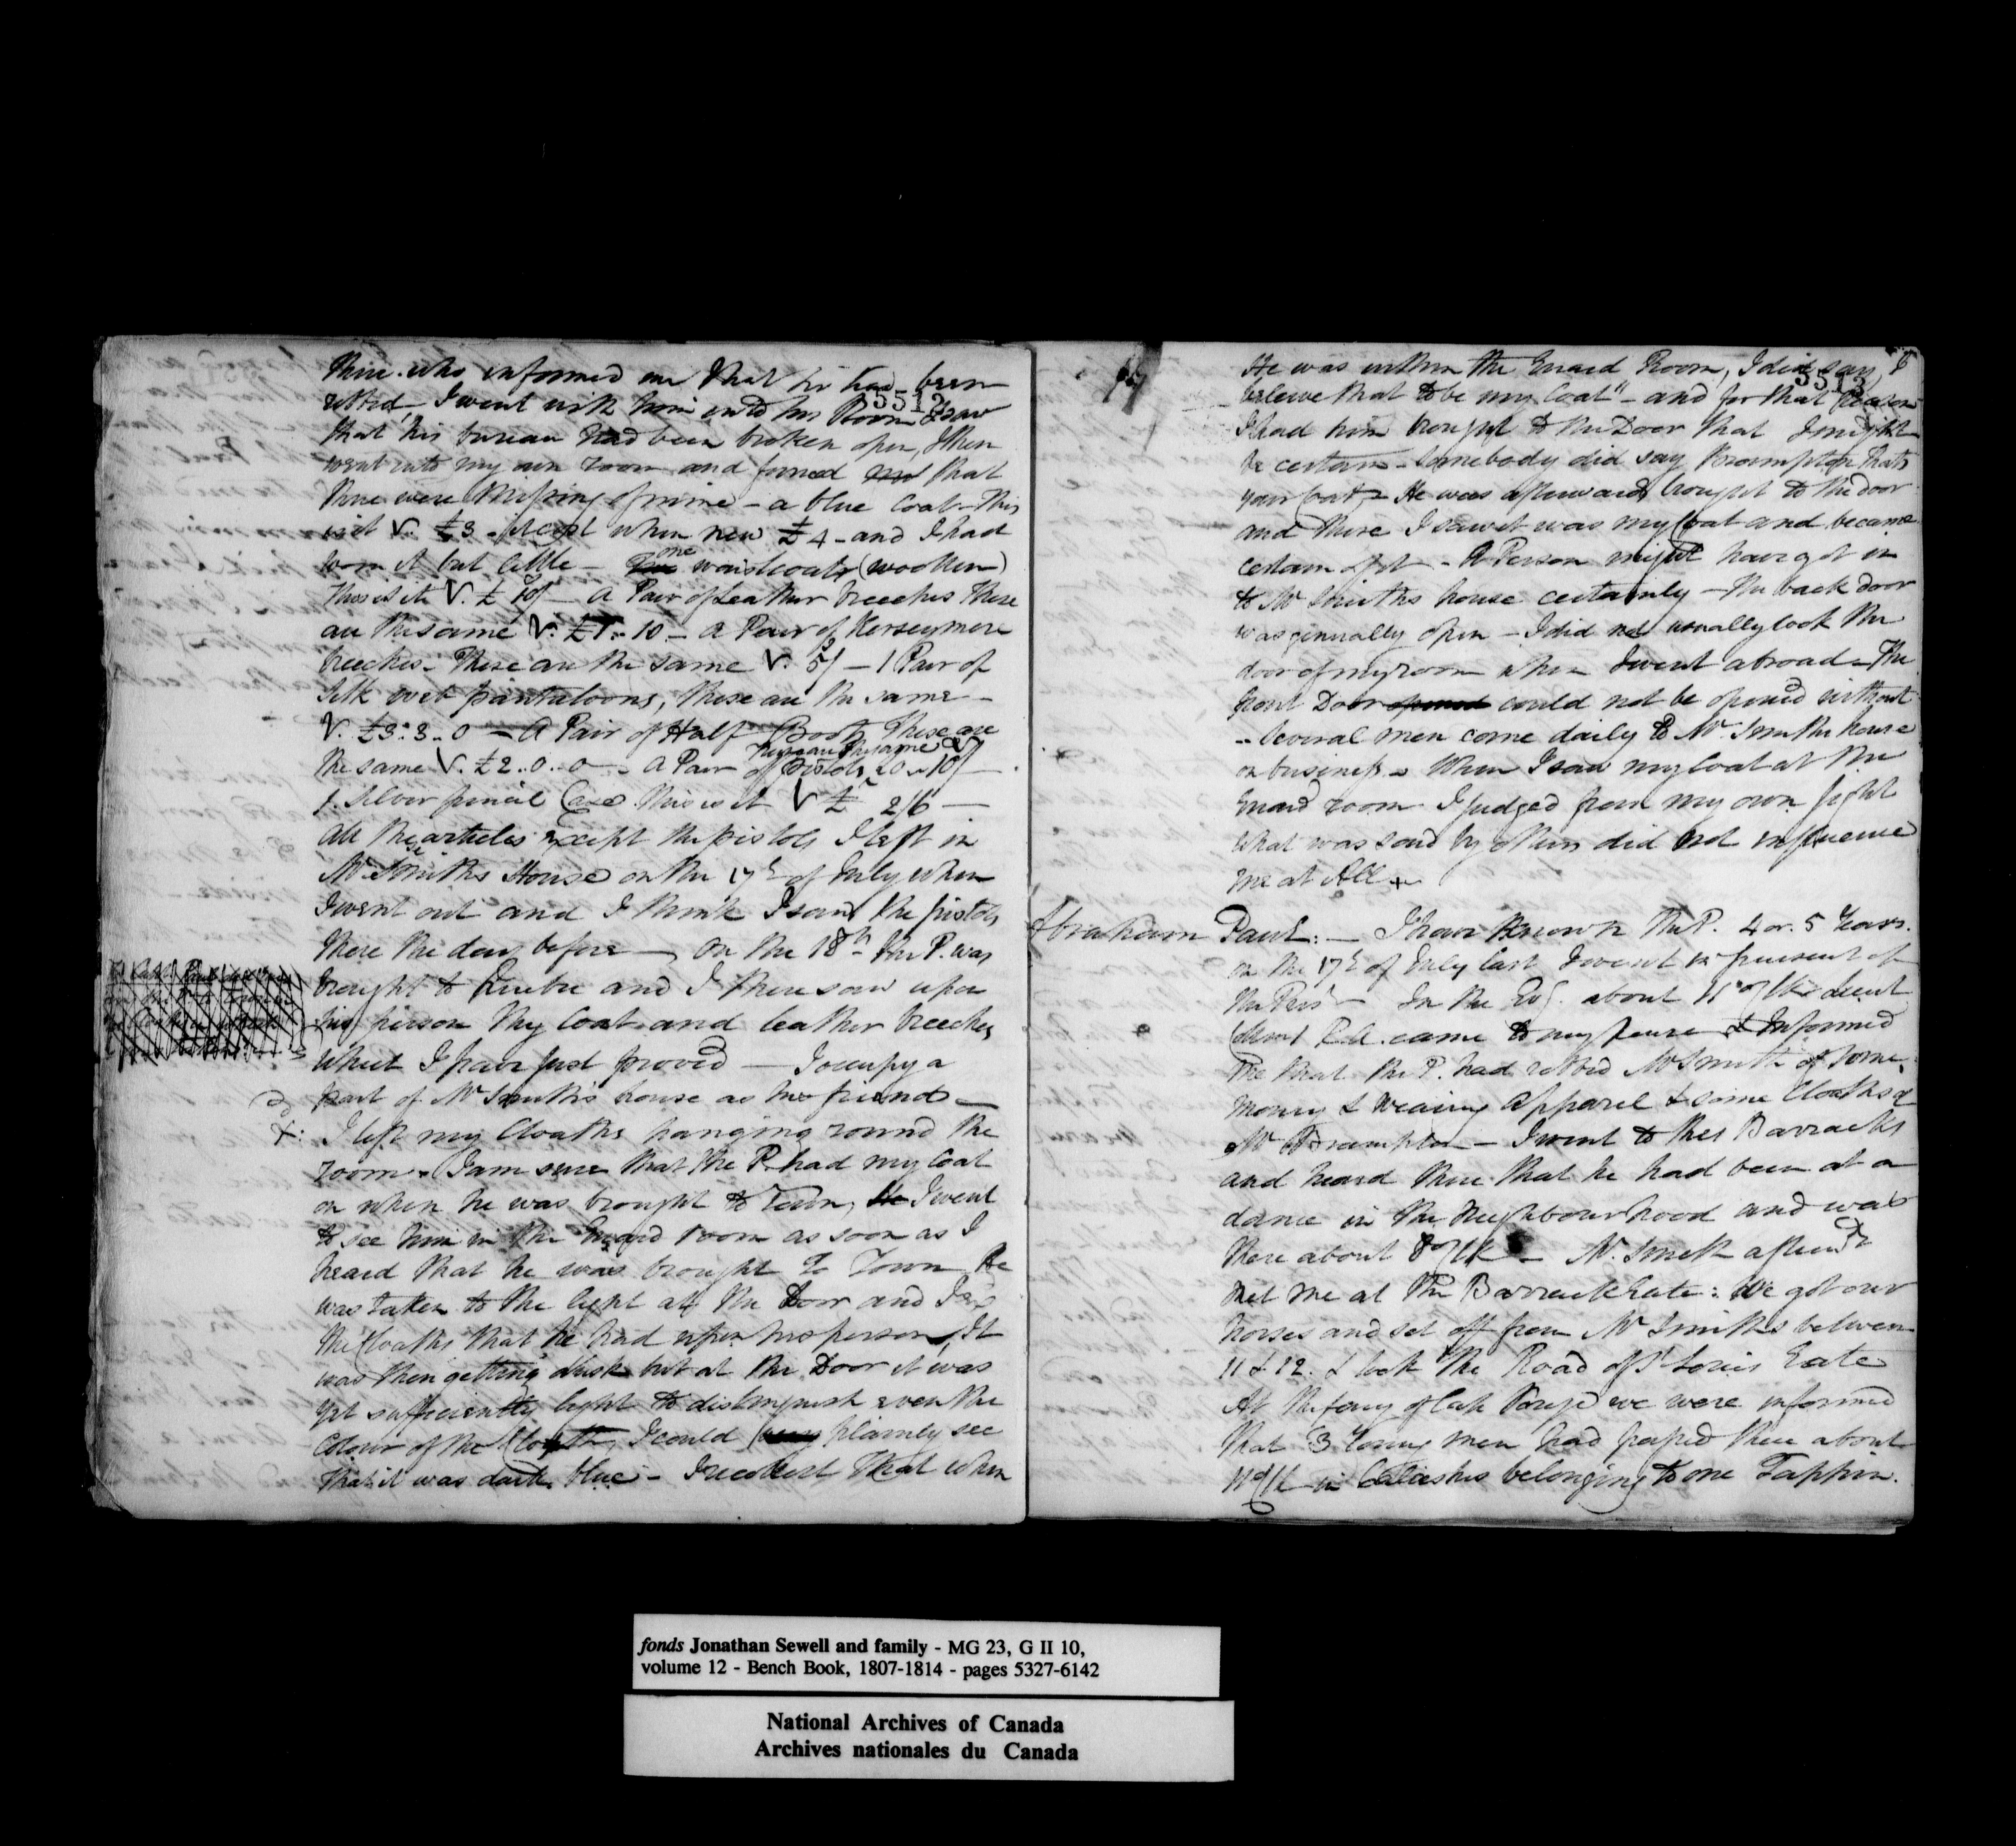 there who informed me that he had been
5512
robbed, I went with him into his Room & saw
that his bureau had been broken open, I then
went into my own room and found that
there were missing of mine - a blue Coat - This
is it V. £3 - it cost when new £4 - and I had
worn it but little - one waistcoat (woollen)
This is it V. £ 10/ - a Pair of Leather breeches These
are the same V. £1..10 - a Pair of Kerseymere
breeches - These are the same V. 5/ - 1 Pair of
silk wet pantaloons, these are the same -
V. £3:3.0 - A Pair of Half Boots These are
the same V. £2..0..0 - a Pair of pistols These are the same £0..10/ -
1. silver pencil Case. This is it V £ 2/6 -
All these articles except the pistols I left in
Mr Smiths House on the 17th of July when
I went out and I think I saw the pistols
there the day before - On the 18th the P. was
brought to Quebec and I there saw upon
his person my Coat and leather breeches
which I have just proved - I occupy a
part of Mr Smith's house as his friend -
X: I left my Cloaths hanging round the
room. I am sure that the P. had my Coat
on when he was brought to Town, He I went
to see him in the Guard room as soon as I
heard that he was brought to Town He
was taken to the light at the Door and I saw
the Cloaths that he had upon his person, It
was then getting dusk but at the Door it was
yet sufficiently light to distinguish even the
colour of the Cloaths, I could very plainly see
that it was dark blue - I recollect that when
5513
He was within the Guard Room, I did say, "I
believe that to be my Coat" - and for that reason
I had him brought to the Door that I might
be certain - Somebody did say Brampton thats
your Coat - He was afterwards brought to the door
and there I saw it was my Coat and became
certain of it - A Person might have got in
to Mr Smiths house certainly - The back door
was generally open - I did not usually lock the
door of my room when I went abroad - The
front Door opened could not be opened without
- Several men come daily to Mr. Smiths house
on business - When I saw my Coat at the
Guard room I judged from my own sight
what was said by others did not influence
me at All +
Abraham Paul: - I have known the P. 4 or 5 Years.
on the 17th of July last I went in pursuit of
the Pris. - In the Evg. about 11 o'/Ck Lieut
R.A. came to my house & Informed
me that the P. had robbed Mr Smith of some
money & wearing apparel & some Cloaths of
Mr Brampton - I went to the Barracks
and heard there that he had been at a
dance in the Neighbourhood and was
there about 8 o/Ck - Mr. Smith afterwds
met me at the Barrack Gate: We got our
horses and set off from Mr Smiths between
11 & 12. & took the Road of St Louis Gate
At the ferry of Cap Rouge we were informed
that 3 Young men had passed there about
11 o/Ck in Calashes belonging to one Tappin.
fonds Jonathan Sewell and family - MG 23, G II 10,
volume 12 - Bench Book, 1807-1814 - pages 5327-6142
National Archives of Canada
Archives nationales du Canada